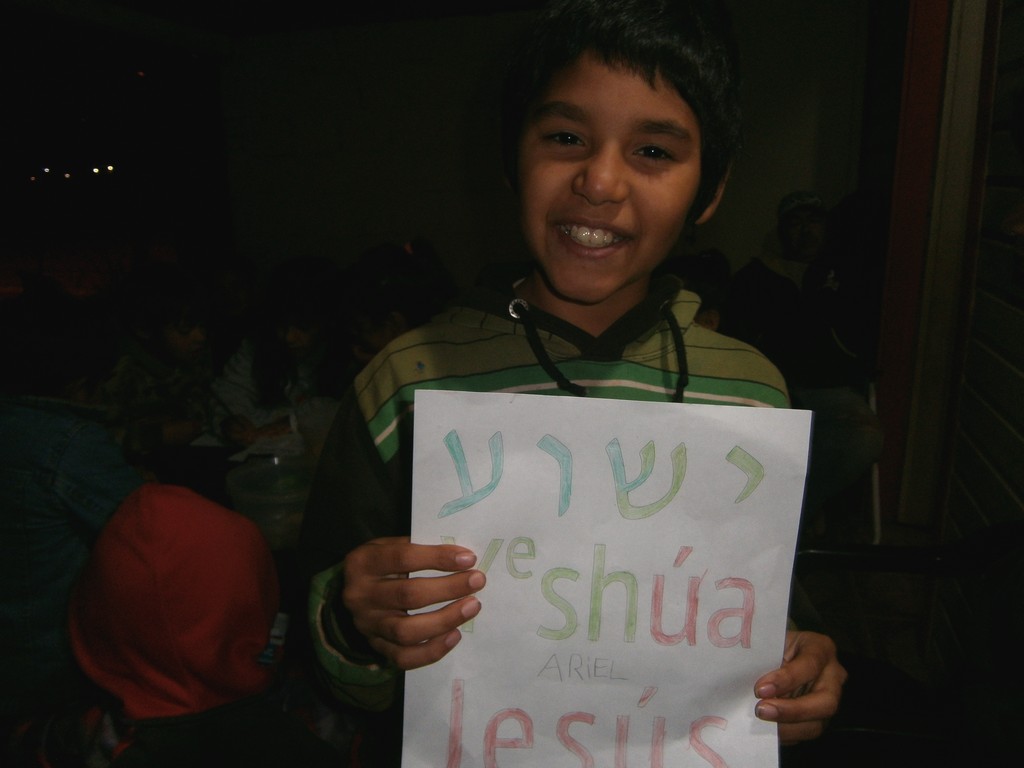 ישוע
Yeshúa
ARIEL
Jesús